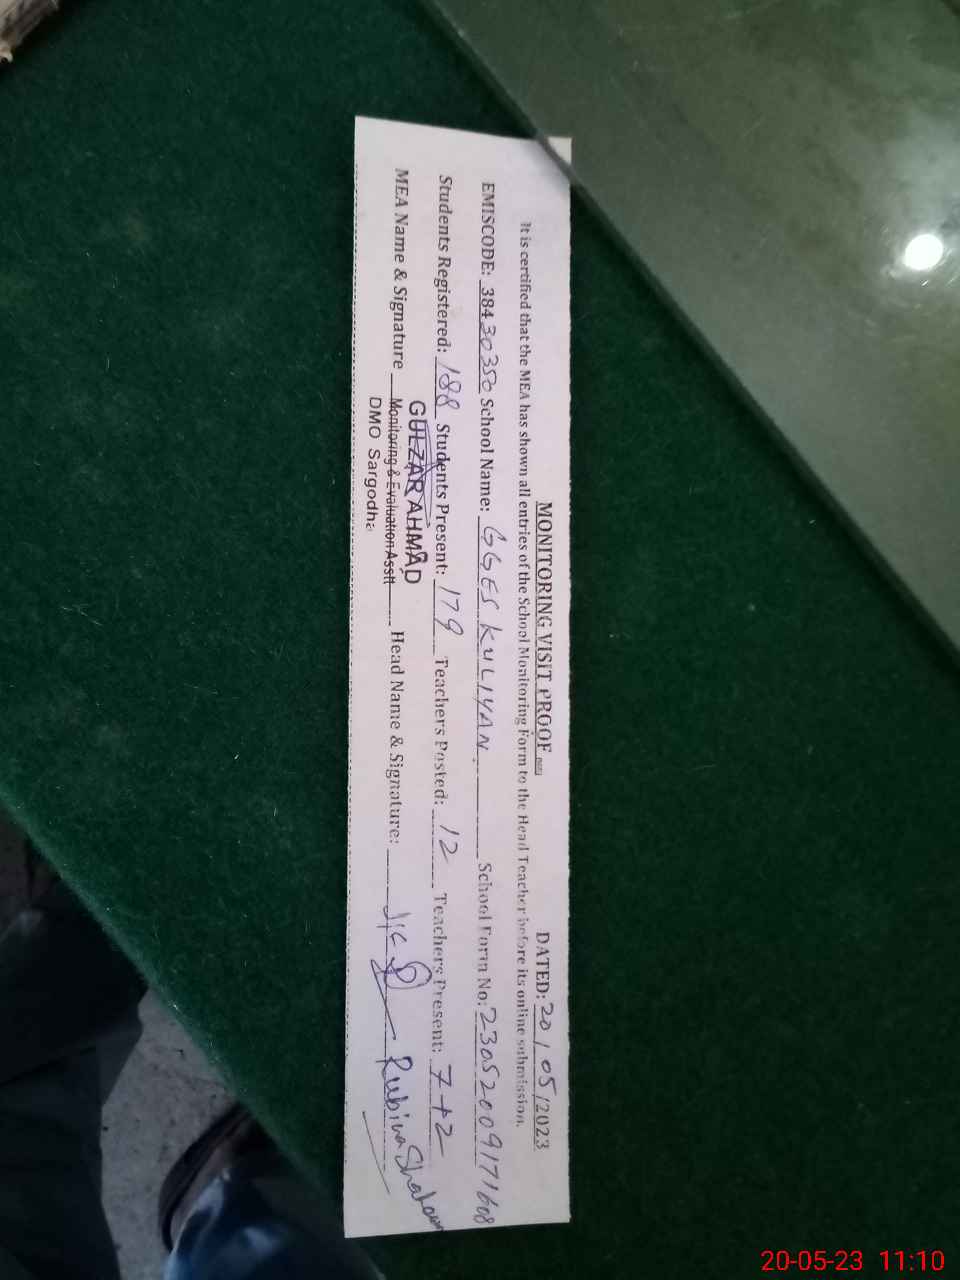 MONITORING VISIT PROOF DATED: 20/05/2023
It is certified that the MEA has shown all entries of the School Monitoring Form to the Head Teacher before its online submission.
EMISCODE: 38430350 School Name: GGES KULIYAN School Form No: 23052009171608
Students Registered: 188 Students Present: 179 Teachers Posted: 12 Teachers Present: 7+2
MEA Name & Signature Head Name & Signature: Rubina Shaheen
GULZAR AHMAD
Monitoring & Evaluation Asstt
DMO Sargodha
20-05-23 11:10